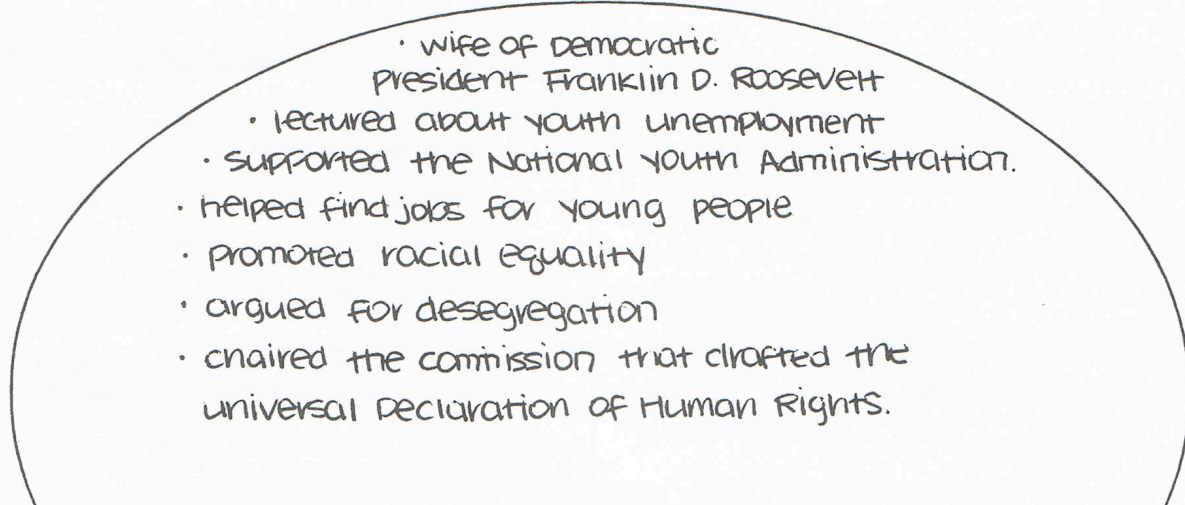 · wife of Democratic
President Franklin D. Roosevelt
· lectured about youth unemployment
· supported the National Youth Administration.
· helped find jobs for young people
· promoted racial equality
· argued for desegregation
· chaired the commission that drafted the
universal Declaration of Human Rights.